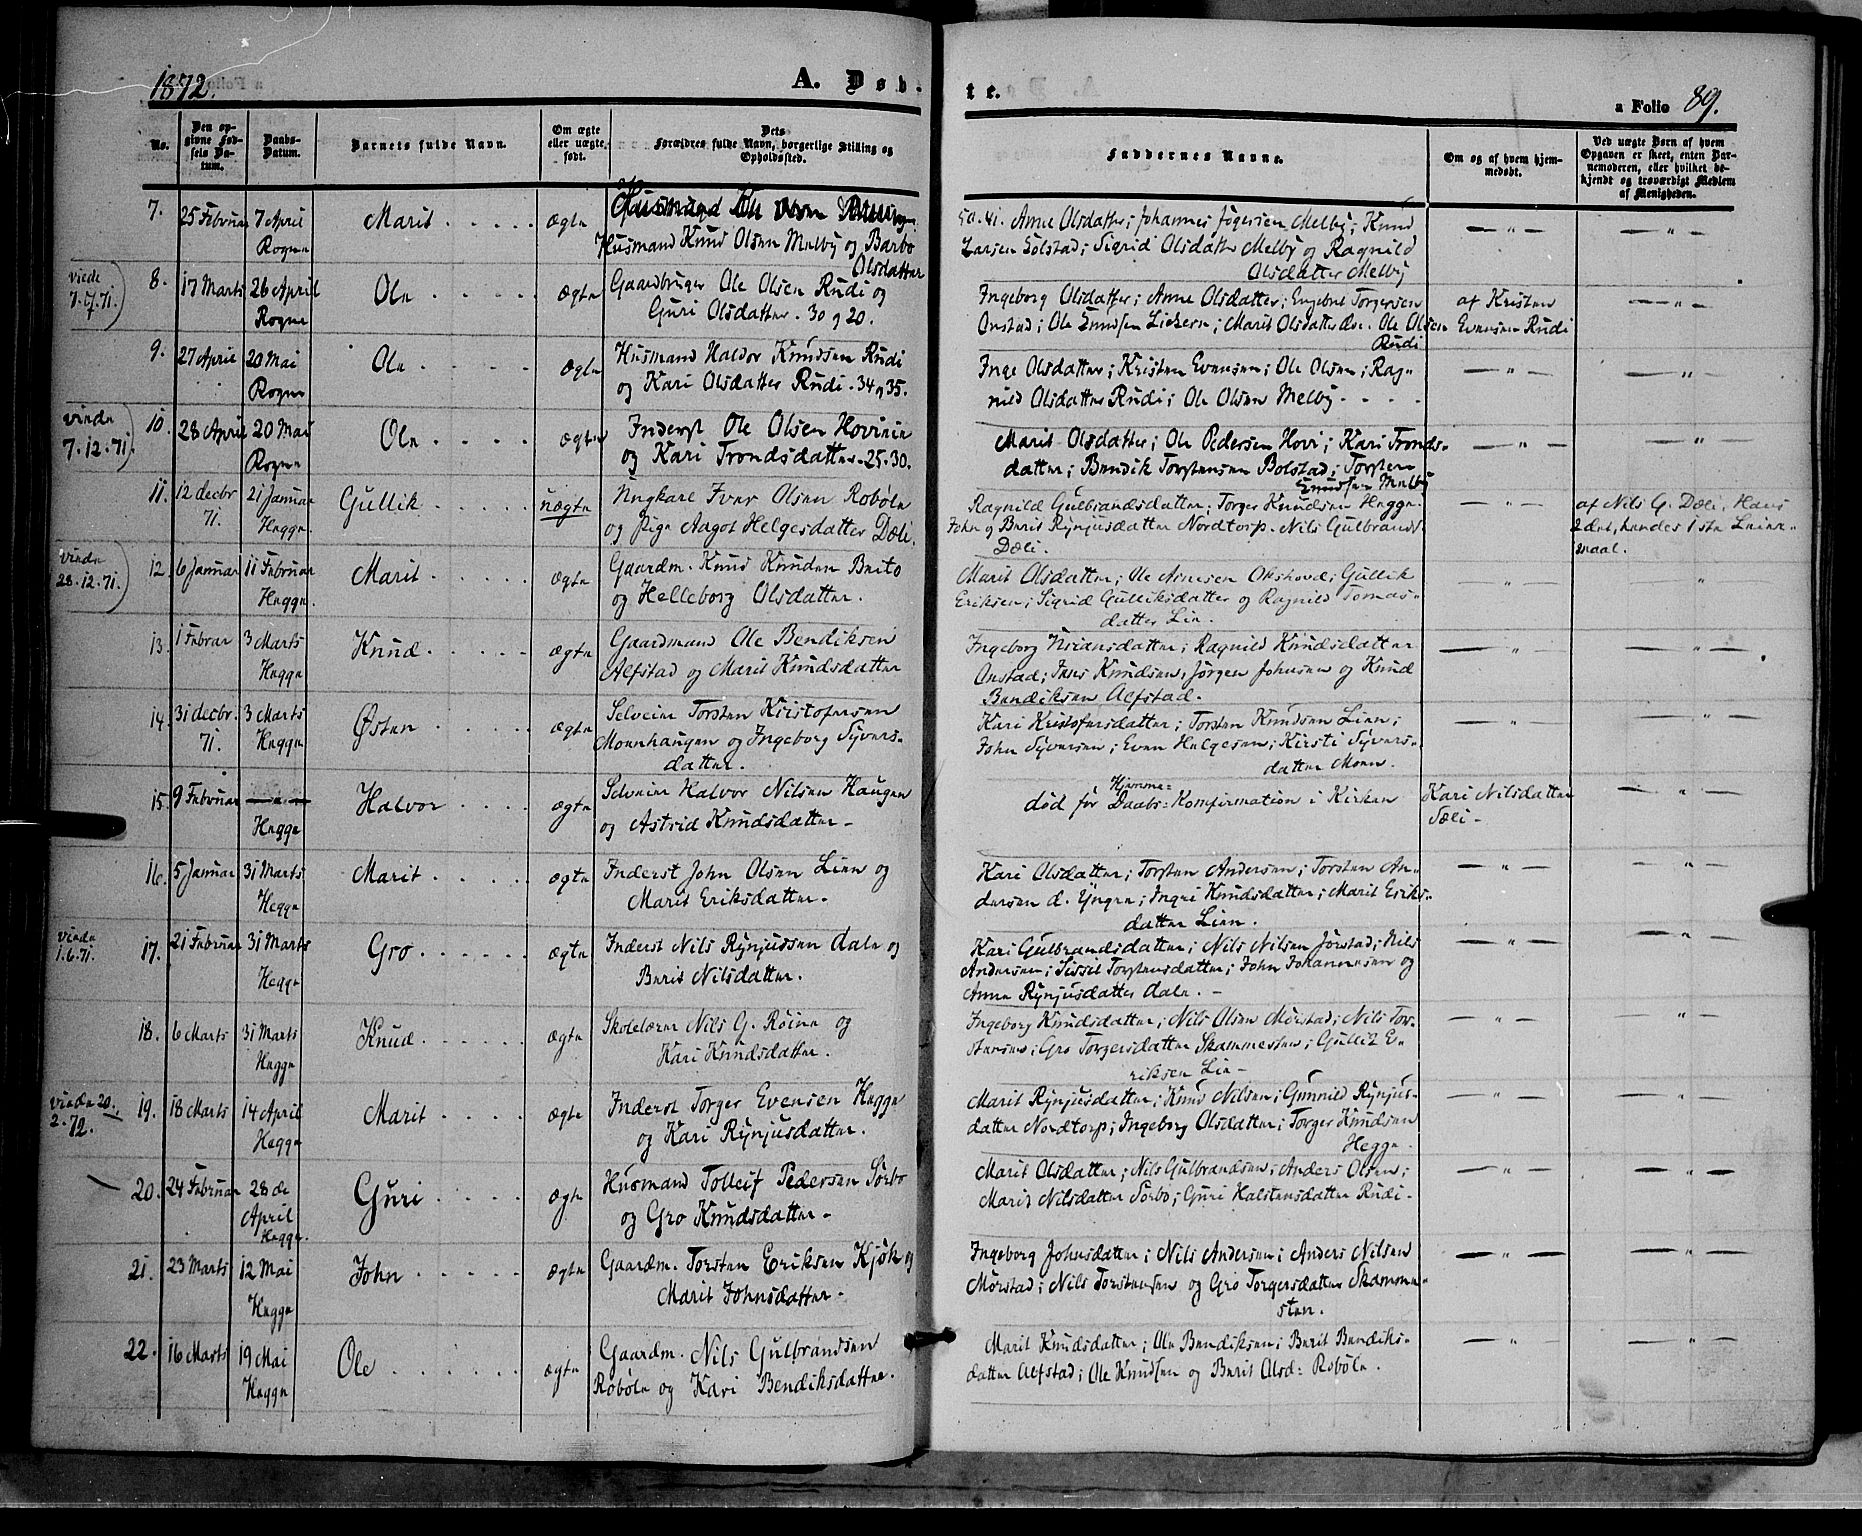 1872.
A. Døb-
te.
a Folio 89.
No.
Den op-
givne Fød-
sels Da-
tum.
Daabs-
Datum.
Barnets fulde Navn.
Om ægte
eller uægte
født.
Dets
Forældres fulde Navn, borgerlige Stilling og
Opholdssted.
Faddernes Navne.
Om og af hvem hjem-
medøbt.
Ved uægte Børn af hvem
Opgaven er skeet, enten Bar-
nemoderen, eller hvilket be-
kjendt og troværdigt Medlem
af Menigheden.
7. 25 Februar 7 April Marit ægte
Rogne
Husmand Knud Olsen Melby og Barbo
Olsdatter
50. 41. Anne Olsdatter; Johannes Jøgersen Melby; Knud
Larsen Sølstad; Sigrid Olsdatter Melby og Ragnild
Olsdatter Melby
viede
7.7.71.
8. 17 Marts 26 April Ole ægte
Rogne
Gaardbruger Ole Olsen Rudi og
Guri Olsdatter. 30 og 20.
Ingeborg Olsdatter; Anne Olsdatter; Engebret Torgersen
Onstad; Ole Knudsen; Marit Olsdatter. Ole Olsen
Rudi
af Kristen
Evensen Rudi
9. 27 April 20 Mai Ole ægte
Rogne
Husmand Haldor Knudsen Rudi
og Kari Olsdatter Rudi. 34 og 35.
Inge Olsdatter; Kristen Evensen; Ole Olsen; Rag-
nild Olsdatter Rudi; Ole Olsen Melby
viede
7.12.71.
10. 28 April 20 Mai Ole ægte
Rogne
Inderst Ole Olsen Hovieie
og Kari Trondsdatter. 25. 30.
Marit Olsdatter; Ole Pedersen Hovi; Kari Tronds-
datter; Bendik Torstensen Bolstad; Torsten
Knudsen Melby
11. 12 decbr 21 Januar Gullik uægte
71. Hegge
Ungkarl Iver Olsen Robøle
og Pige Aagot Helgesdatter Dæli.
Ragnild Gulbrandsdatter; Torger Knudsen Hegge.
John og Berit Rynjusdatter Nordtorp. Nils Gulbrands.
Dæli.
af Nils G. Dæli, Hans
2det, hendes 1ste Leier-
maal.
viede
28.12.71.
12. 6 Januar 11 Februar Marit ægte
Hegge.
Gaardm. Knud Knudsen Beito
og Helleborg Olsdatter.
Marit Olsdatter; Ole Arnesen Okshovd; Gullik
Eriksen; Sigrid Gulliksdatter og Ragnild Tomas-
datter Lie.
13. 1 Februar 3 Marts Knud ægte
Hegge
Gaardmand Ole Bendiksen
Alfstad og Marit Knudsdatter
Ingeborg Iversdatter; Ragnild Knudsdatter
Onstad; Iver Knudsen; Jørgen Johnsen og Knud
Bendiksen Alfstad.
14. 31 decbr. 3 Marts Østen ægte
71. Hegge
Selveier Torsten Kristofersen
Moenhaugen og Ingeborg Syvers-
datter.
Kari Kristofersdatter; Torsten Knudsen Lien;
John Syversen; Even Helgesen; Kirsti Syvers-
datter Moen.
15. 9 Februar Halvor ægte
Hegge
Selveier Halvor Nilsen Haugen
og Astrid Knudsdatter -
Hjemme-
død før Daabs-Konfirmation i Kirken
Kari Nilsdatter
Dæli -
16. 5 Januar 31 Marts Marit ægte
Hegge
Inderst John Olsen Lien og
Marit Eriksdatter.
Kari Olsdatter; Torsten Andersen; Torsten An-
dersen d. Yngre; Ingri Knudsdatter; Marit Eriks-
datter Lien.
viede
1.6.71.
17. 21 Februar 31 Marts Gro ægte
Hegge
Inderst Nils Rynjussen Dale og
Berit Nilsdatter.
Kari Gulbrandsdatter; Nils Nilsen Jørstad; Nils
Andersen; Sissel Torstensdatter; John Johannesen og
Anne Rynjusdatter Dale. -
18. 6 Marts 31 Marts Knud ægte
Hegge
Skolelærer Nils G. Røine og
Kari Knudsdatter.
Ingeborg Knudsdatter; Nils Olsen Mørstad; Nils Tor-
stensen; Gro Torgersdatter Skammesten; Gullik E-
riksen Lie -
viede 20.
2. 72.
19. 18 Marts 14 April Marit ægte
Hegge
Inderst Torger Evensen Hegge
og Kari Rynjusdatter.
Marit Rynjusdatter; Knud Nilsen; Gunnild Rynjus-
datter Nordtorp; Ingeborg Olsdatter; Torger Knudsen
Hegge.
20. 24 Februar 28de Guri ægte
April
Hegge.
Husmand Tolleif Pedersen Sørbo
og Gro Knudsdatter -
Marit Olsdatter; Nils Gulbrandsen; Anders Olsen;
Marit Nilsdatter Sørbo; Guri Halstensdatter Rudi -
21. 23 Marts 12 Mai John ægte
Hegge
Gaardm. Torsten Eriksen Kjøk og
Marit Johnsdatter -
Ingeborg Johnsdatter; Nils Andersen; Anders Nilsen
Mørstad; Nils Torstensen og Gro Torgersdatter Skamme-
sten.
22. 16 Marts 19 Mai Ole ægte
Hegge
Gaardm. Nils Gulbrandsen
Robøle og Kari Bendiksdatter.
Marit Knudsdatter; Ole Bendiksen; Berit Bendiks-
datter Alfstad; Ole Knudsen og Berit Olsd: Robøle.